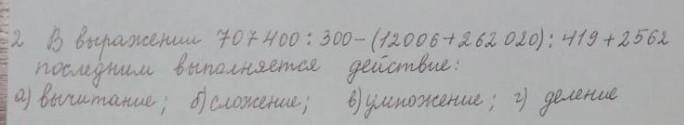 2 В выражении 707400 : 300 - (12006 + 262020) : 419 + 2562
последним выполняется действие:
а) вычитание; б) сложение; в) умножение; г) деление